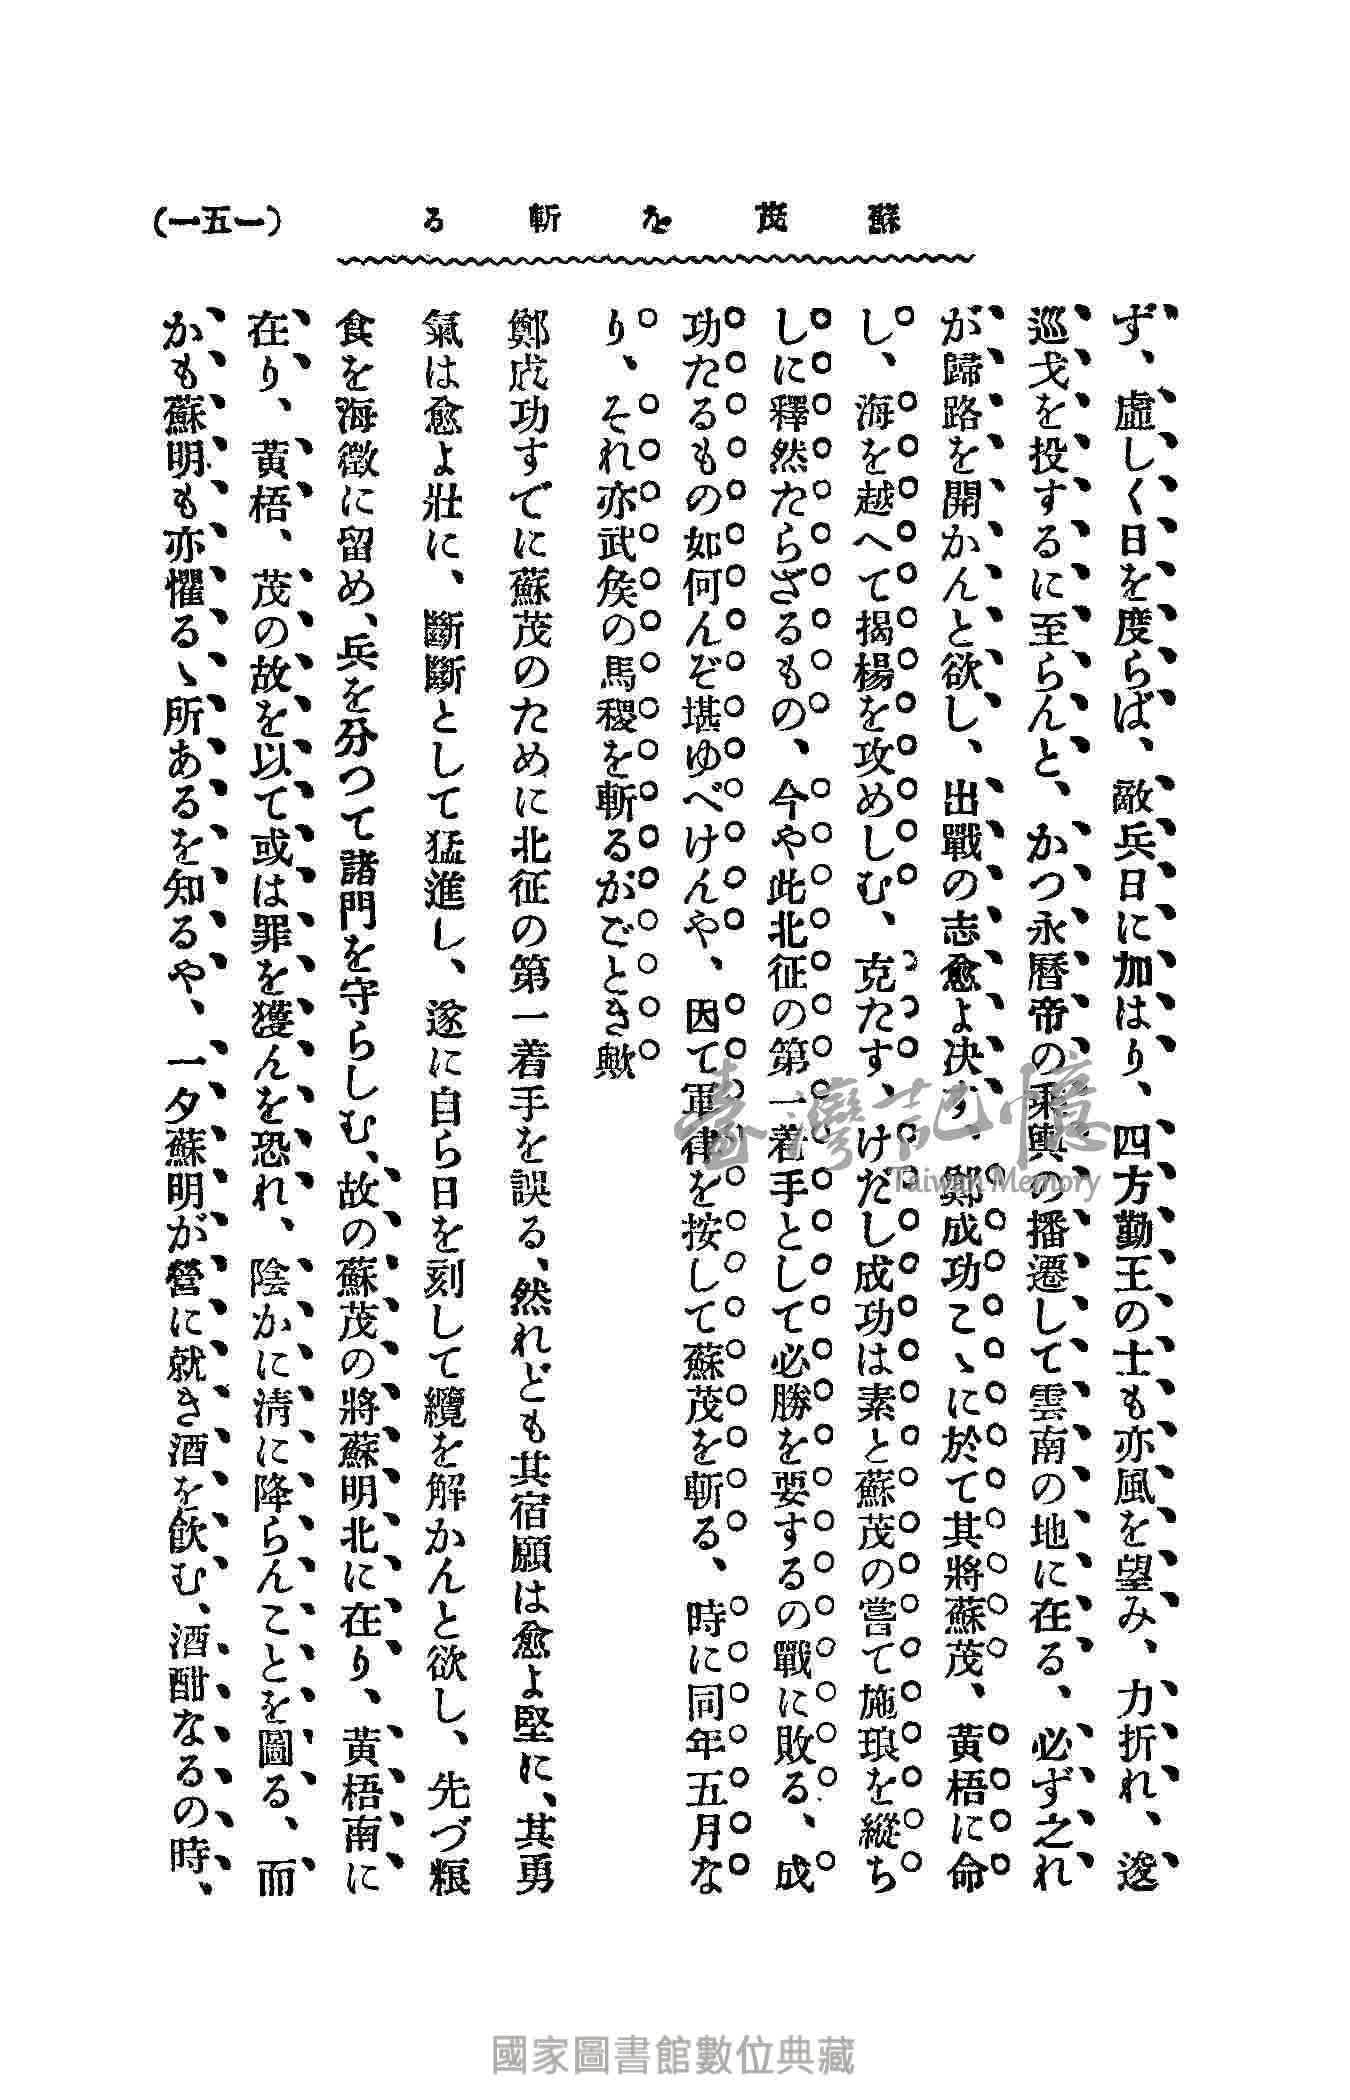 蘇茂を斬る
(一五一)
ず、虛しく日を度らば、敵兵日に加はり、四方勤王の士も亦風を望み、力折れ、逡
巡戈を投するに至らんと、かつ永曆帝の乘輿の播遷して雲南の地に在る、必ず之れ
が歸路を開かんと欲し、出戰の志愈よ决す、鄭成功こゝに於て其將蘇茂、黃梧に命
し、海を越へて揭楊を攻めしむ、克たす、けだし成功は素と蘇茂の嘗て施琅を縱ち
しに釋然たらざるもの、今や此北征の第一着手として必勝を要するの戰に敗る、成
功たるもの如何んぞ堪ゆべけんや、因て軍律を按して蘇茂を斬る、時に同年五月な
り、それ亦武矦の馬稷を斬るがごとき歟
鄭成功すでに蘇茂のために北征の第一着手を誤る、然れども其宿願は愈よ堅に、其勇
氣は愈よ壯に、斷斷として猛進し、遂に自ら日を刻して纜を解かんと欲し、先づ粮
食を海徵に留め、兵を分つて諸門を守らしむ、故の蘇茂の將蘇明北に在り、黃梧南に
在り、黃梧、茂の故を以て或は罪を獲んを恐れ、陰かに淸に降らんことを圖る、而
かも蘇明も亦懼るゝ所あるを知るや、一夕蘇明が營に就き酒を飮む、酒酣なるの時、
臺灣記憶
Taiwan Memory
國家圖書館數位典藏